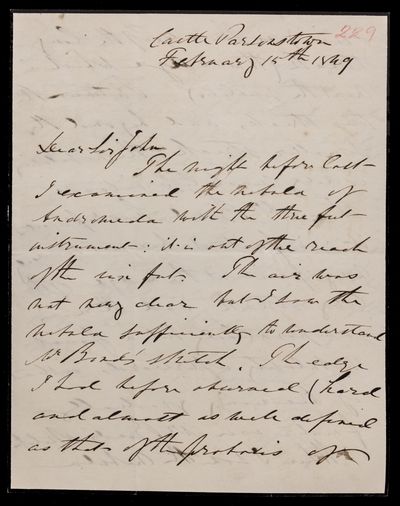 229
Castle Parsonstown
February 15th 1849
Dear Sir John
The night before last
I examined the nebula of
Andromeda with the three feet
instrument: it is out of the reach
of the six feet. The air was
not very clear but I saw the
nebula sufficiently to understand
Mr Bond's sketch. The edge
I had before observed (hard
and almost as well defined
as that of the proboscis of